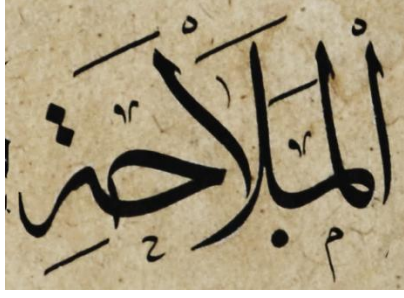 الْمَلَاْحَةِ